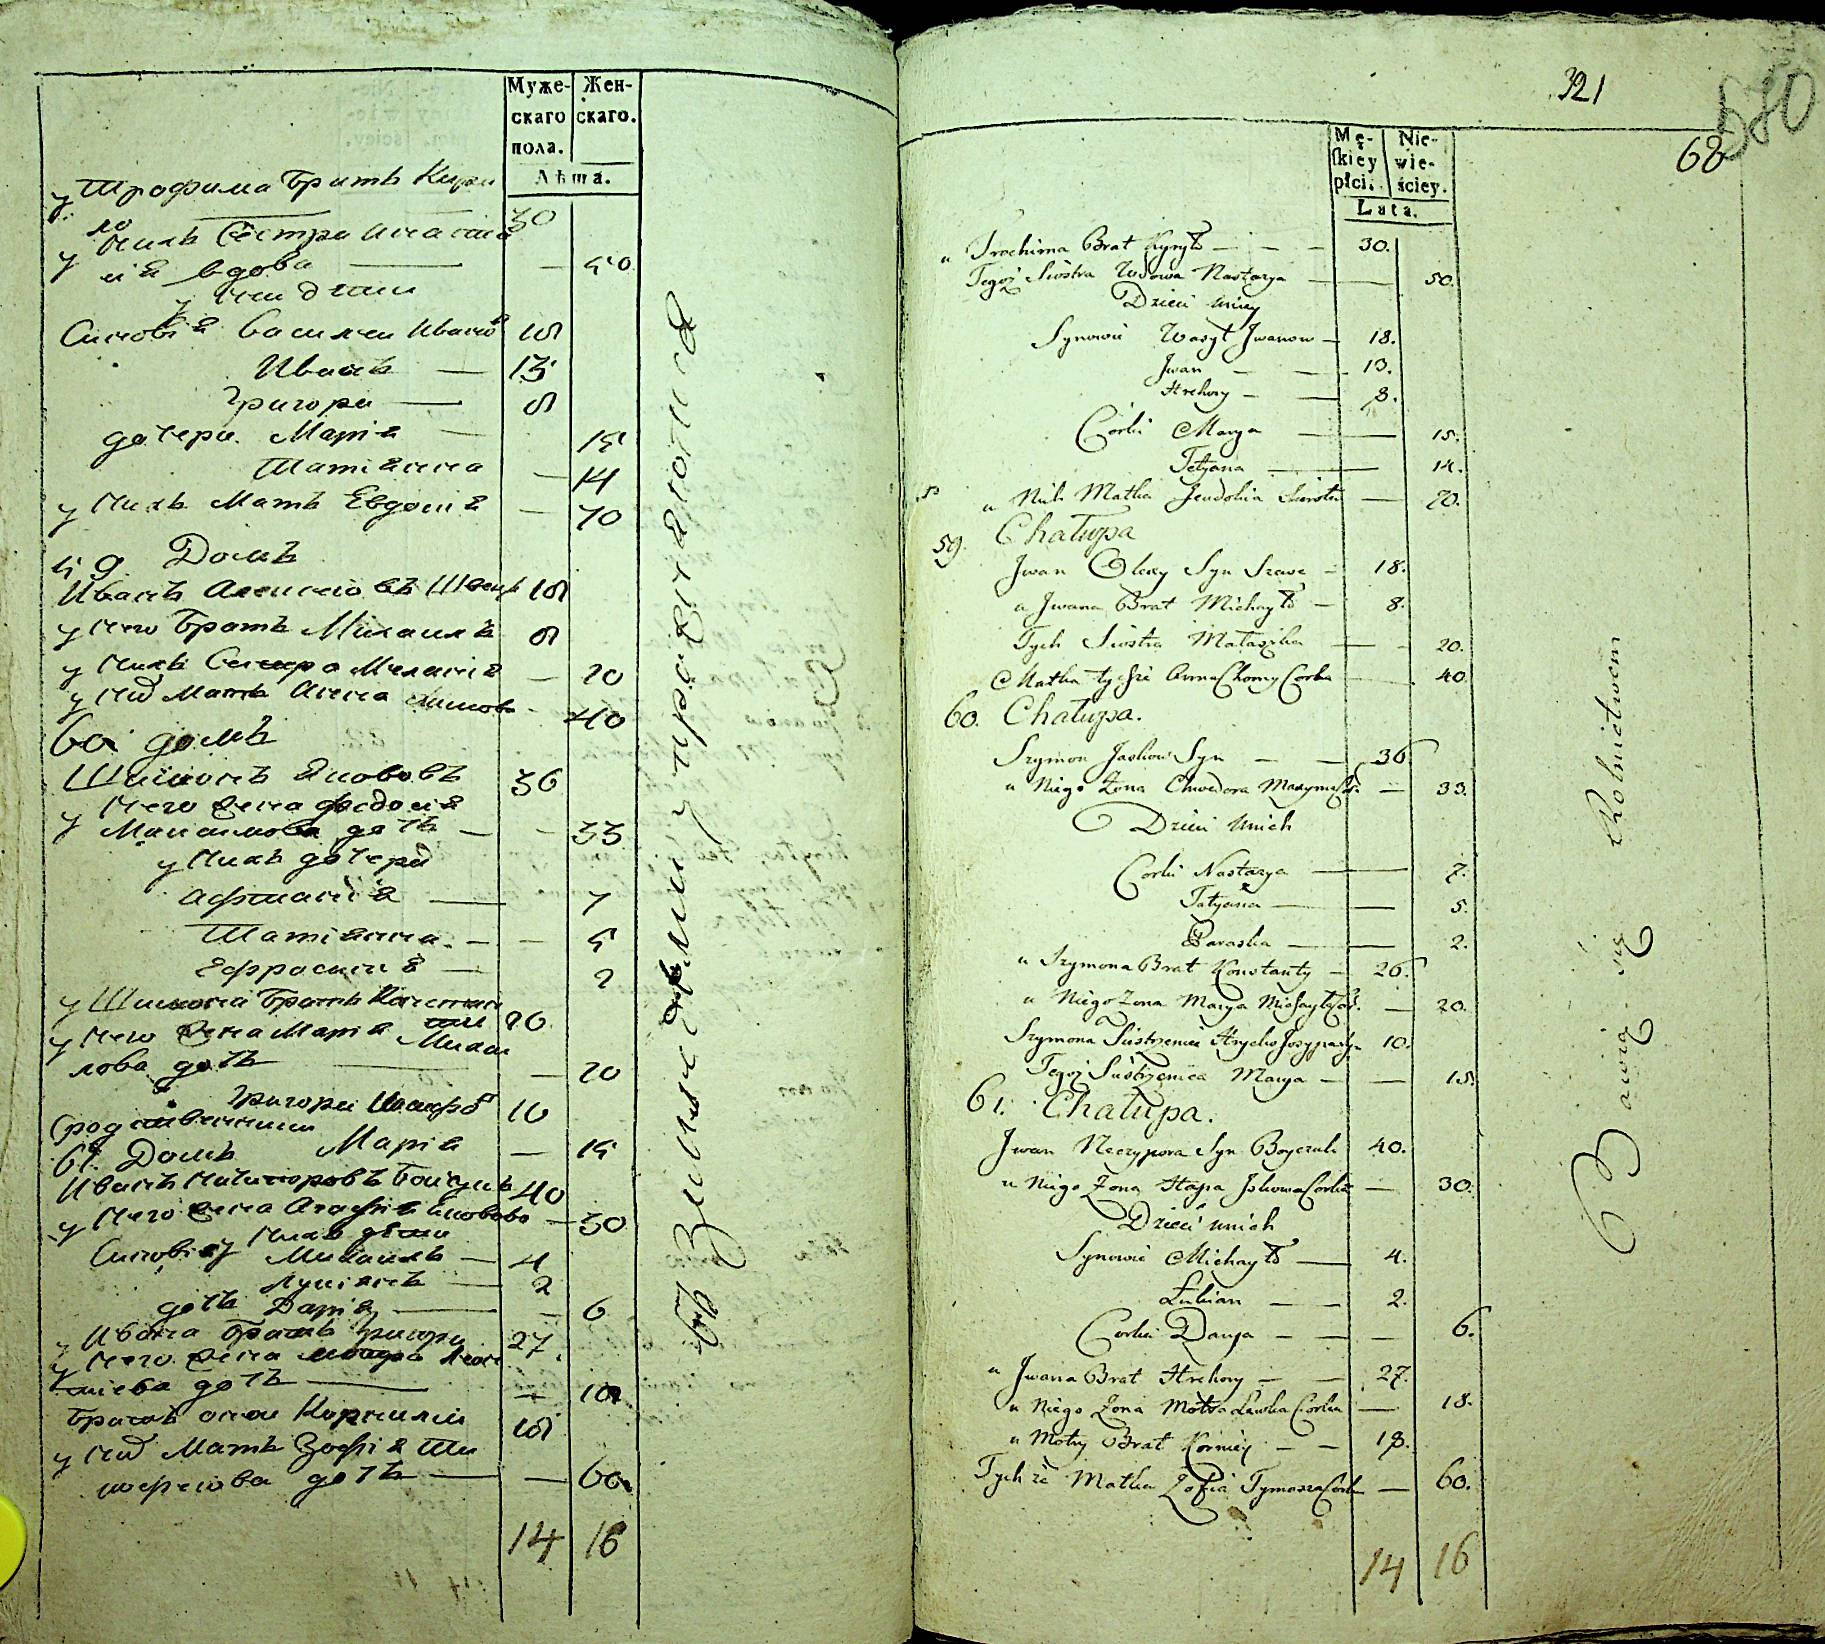 Муже-
скаго
пола.
Жен-
скаго.
Лѣта.
у Трофима братъ Кири
ло 30
у нихъ сестра Анастасі
ия вдова — 50
у нихъ дѣти
Синовія Василеи Ивановъ 18
Иванъ — 13
Григори — 8
дочери Марія — 15
Татіянна — 14
у нихъ мать Евдокія — 70
59 Домъ
Иванъ Алексѣовъ Швецъ 18
у него братъ Михаилъ 8
у нихъ сестра Меланія — 20
у нихъ мать Анна — 40
60 домъ
Шимонъ Яковов 36
у него жена Федосія
Максимова дочь — 33
у нихъ дочери
Афтанія — 7
Татіянна — 5
Ефросинія — 2
у Шимона братъ Констан
тин 26
у него жена Марія Михаи
лова дочь — 20
Григори 10
Родственники
Марія — 15
61 Домъ
Иванъ Ничипоровъ Боичукъ 40
у него жена Агафія — 30
у нихъ дѣти
Синовія Михаилъ — 4
Лукіянъ — 2
дочь Дарія — 6
у Ивана братъ Григори 27.
у него жена Мотра
дочь — 18
братъ Корнилии 18
у нихъ мать Зофія Ти
мофѣова дочь — 60
14 16
Въ Зимнѣ
321
580
68
Mę-
skiey
płci.
Nie-
wie-
ściey.
Lata.
u Trochima Brat Kyryło — 30.
Tegoż Siostra Wdowa Nastazya — 50.
Dzieci u niey
Synowie Wasyl Jwanow — 18.
Jwan — 13.
Hrehory — 8.
Corki Marya — 15.
Tetyana — 14.
u Nich Matka Jeudokia — 70.
59. Chałupa
Jwan Olexy Syn Szewc — 18.
u Jwana Brat Michayło — 8.
Tych Siostra Małaszka — 20.
Matka tychże Anna Chomy Corka — 40
60. Chałupa.
Szymon Jaskow Syn — 36
u Niego Żona Chwedora — 33.
Dzieci u nich
Corki Nastazya — 7.
Tatyana — 5.
Paraska — 2.
u Szymona Brat Konstanty — 26.
u Niego Żona Marya — 20.
Szymona Siostrzeniec — 10.
Tegoż Siostrzenica Marya — 15.
61. Chałupa.
Jwan Neczypora Syn Boyczuk 40.
u Niego Żona Hapa Jskowa Corka — 30.
Dzieci u nich
Synowie Michayło — 4.
Łukian — 2.
Corka Darya — 6.
u Jwana Brat Hrehory — 27.
u Niego Żona Motra Corka — 18.
u Motry Brat Korniey — 18.
Tychże Matka Zofia Tymosza Corka — 60.
14 16
Bawią się Rolnictwem